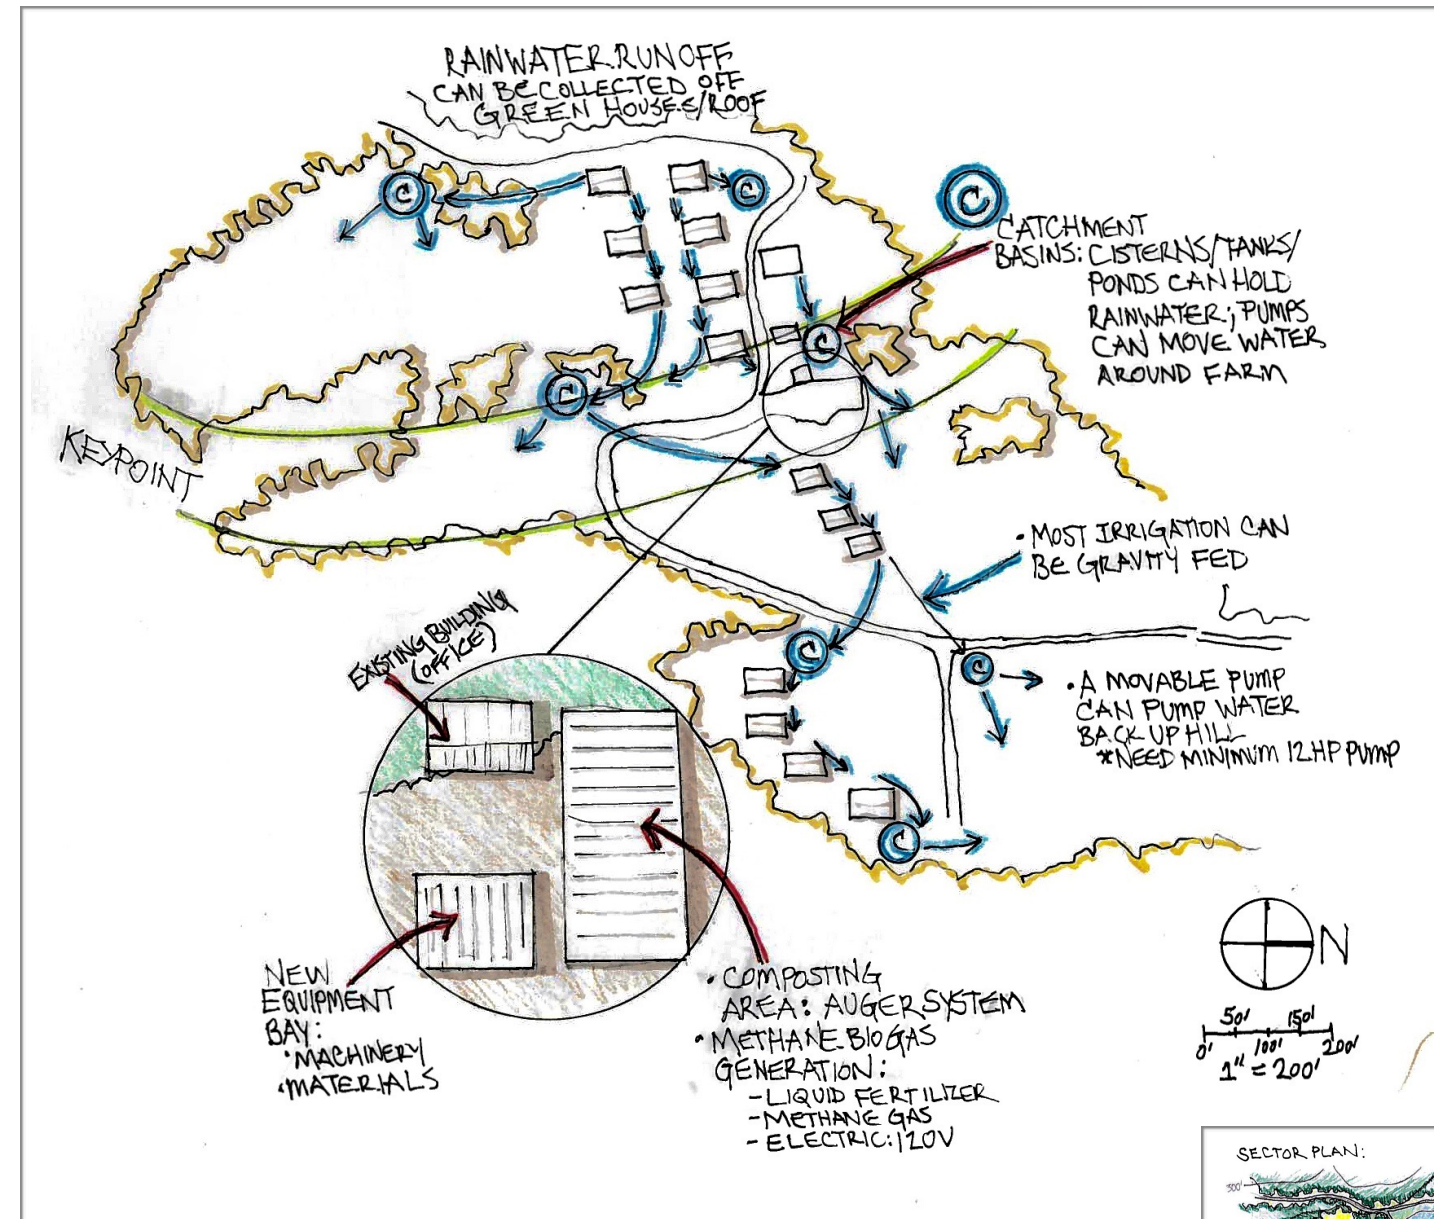 RAINWATER RUNOFF
CAN BE COLLECTED OFF
GREEN HOUSES/ROOF
C
C
C
CATCHMENT
BASINS: CISTERNS/TANKS/
PONDS CAN HOLD
RAINWATER; PUMPS
CAN MOVE WATER
AROUND FARM
C
C
KEYPOINT
• MOST IRRIGATION CAN
BE GRAVITY FED
EXISTING BUILDING
(OFFICE)
C
C
• A MOVABLE PUMP
CAN PUMP WATER
BACK UP HILL
*NEED MINIMUM 12HP PUMP
C
NEW
EQUIPMENT
BAY:
• MACHINERY
• MATERIALS
• COMPOSTING
AREA: AUGER SYSTEM
• METHANE BIOGAS
GENERATION:
- LIQUID FERTILIZER
- METHANE GAS
- ELECTRIC: 120V
N
50' 150'
0' 100' 200'
1" = 200'
SECTOR PLAN:
300'